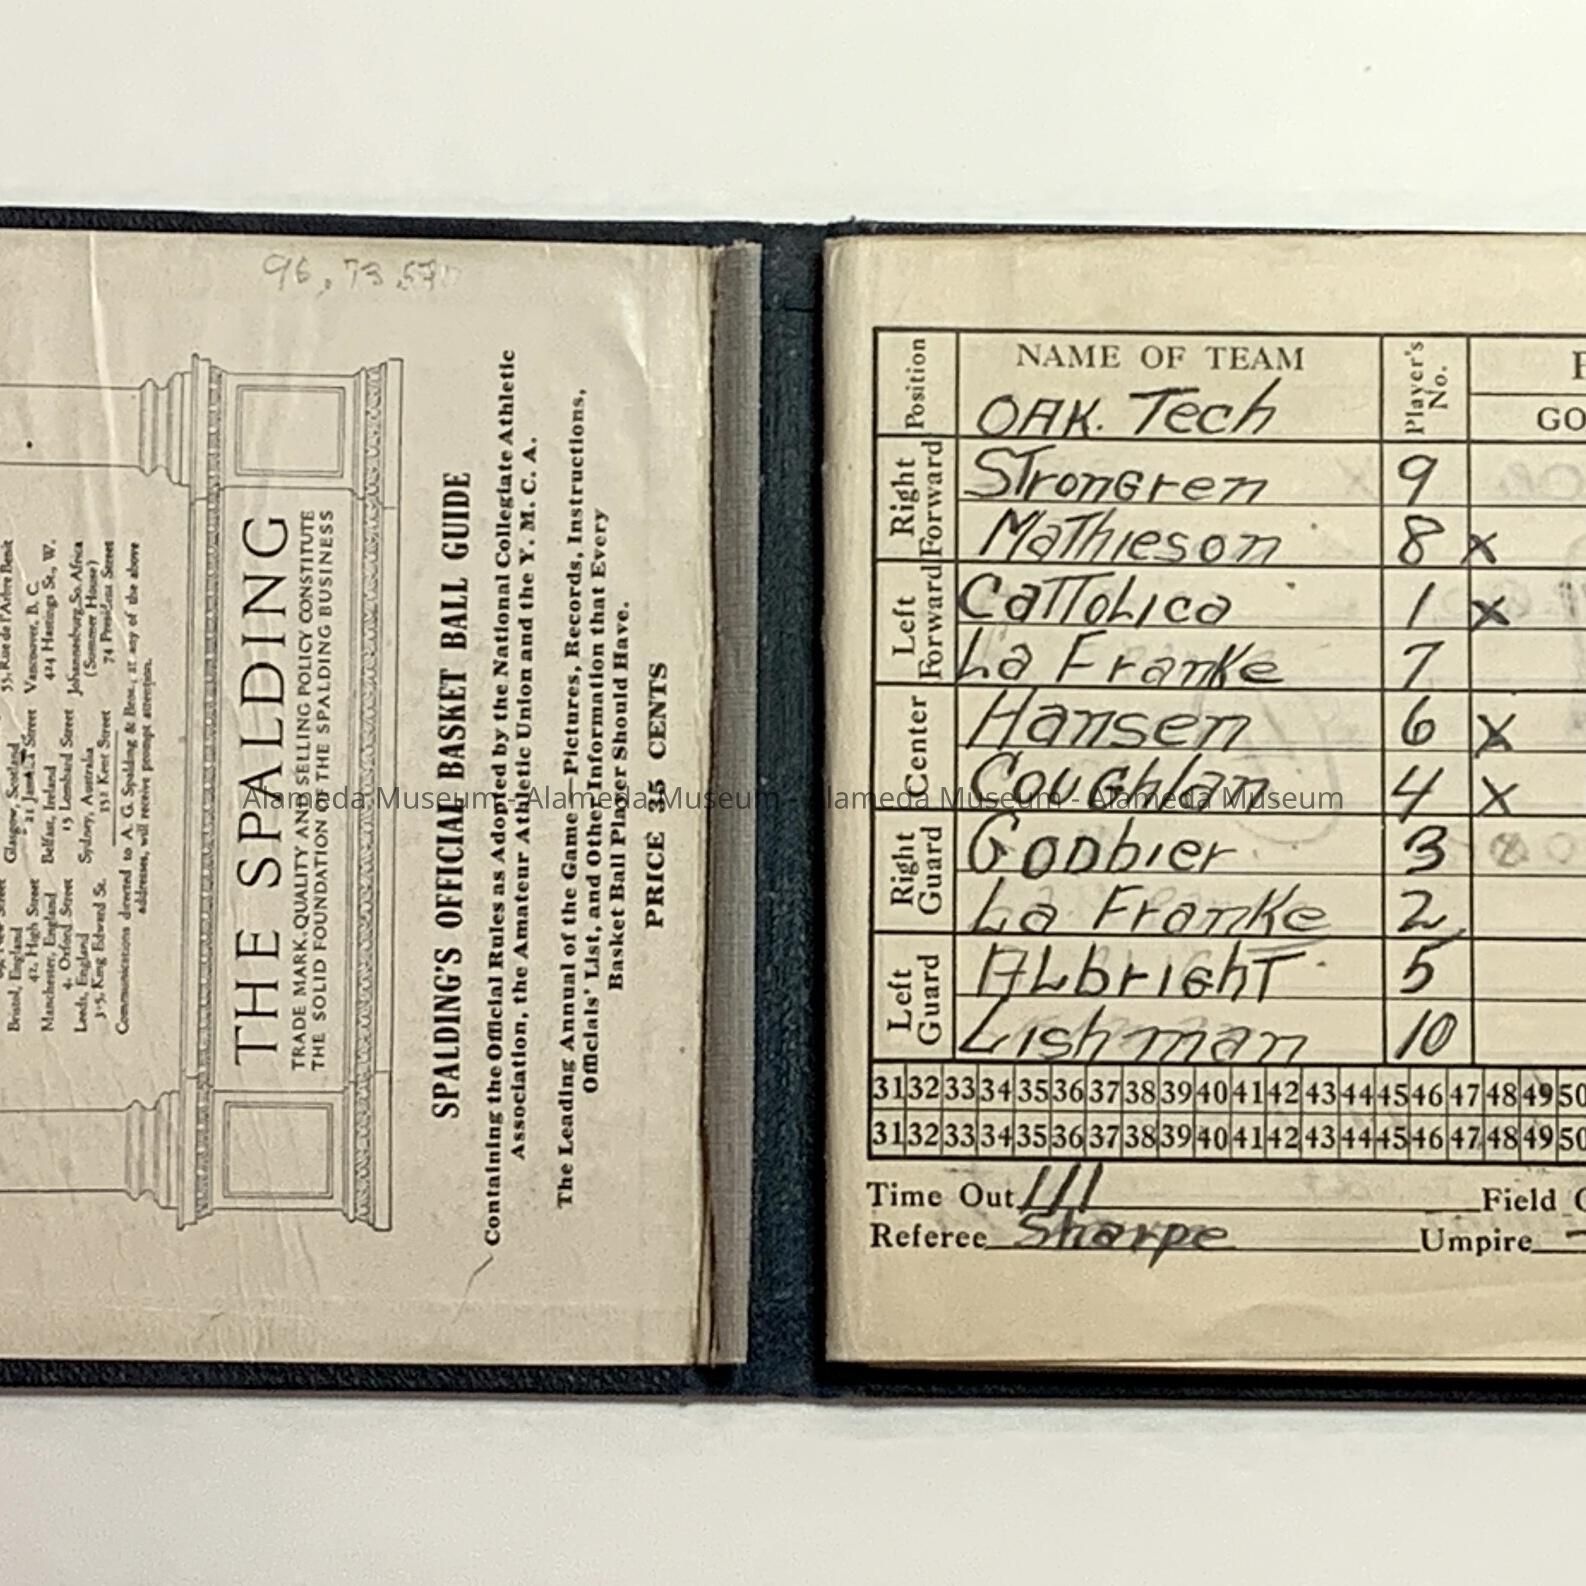 96.73.57
THE SPALDING
TRADE MARK, QUALITY AND SELLING POLICY CONSTITUTE
THE SOLID FOUNDATION OF THE SPALDING BUSINESS
SPALDING'S OFFICIAL BASKET BALL GUIDE
Containing the Official Rules as Adopted by the National Collegiate Athletic
Association, the Amateur Athletic Union and the Y. M. C. A.
The Leading Annual of the Game—Pictures, Records, Instructions,
Officials' List, and Other Information that Every
Basket Ball Player Should Have.
PRICE 35 CENTS
55, Rue de l'Arbre Benit
Vancouver, B. C.
424 Hastings St., W.
Johannesburg, So. Africa
(Summer House)
74 President Street
Glasgow, Scotland
Belfast, Ireland
15 Lombard Street
Sydney, Australia
Bristol, England
42, High Street
Manchester, England
4, Oxford Street
Leeds, England
3-5, King Edward St.
Communications directed to A. G. Spalding & Bros., at any of the above
addresses, will receive prompt attention.
Position NAME OF TEAM Player's No.
OAK. Tech GO
Right Forward Strongren 9
Mathieson 8 x
Left Forward Cattolica 1 x
La Franke 7
Center Hansen 6 x
Coughlan 4 x
Right Guard Godbier 3
La Franke 2
Left Guard Albright 5
Lishman 10
31 32 33 34 35 36 37 38 39 40 41 42 43 44 45 46 47 48 49 50
31 32 33 34 35 36 37 38 39 40 41 42 43 44 45 46 47 48 49 50
Time Out III Field
Referee Sharpe Umpire
Alameda Museum - Alameda Museum - Alameda Museum - Alameda Museum